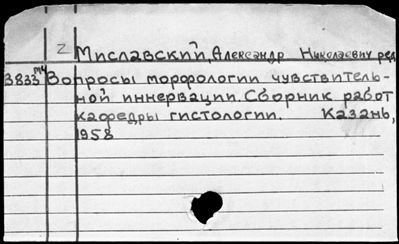 2 Миславский, Александр Николаевич ред
3833 мч Вопросы морфологии чувствитель-
ной иннервации. Сборник работ
кафедры гистологии. Казань,
1958